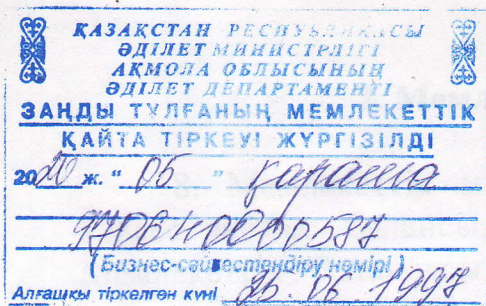 ҚАЗАҚСТАН РЕСПУБЛИКАСЫ
ӘДІЛЕТ МИНИСТРЛІГІ
АҚМОЛА ОБЛЫСЫНЫҢ
ӘДІЛЕТ ДЕПАРТАМЕНТІ
ЗАҢДЫ ТҰЛҒАНЫҢ МЕМЛЕКЕТТІК
ҚАЙТА ТІРКЕУІ ЖҮРГІЗІЛДІ
2020 ж. " 05 " қараша
970640000587
(Бизнес-сәйкестендіру нөмірі)
Алғашқы тіркелген күні 25.06 1997